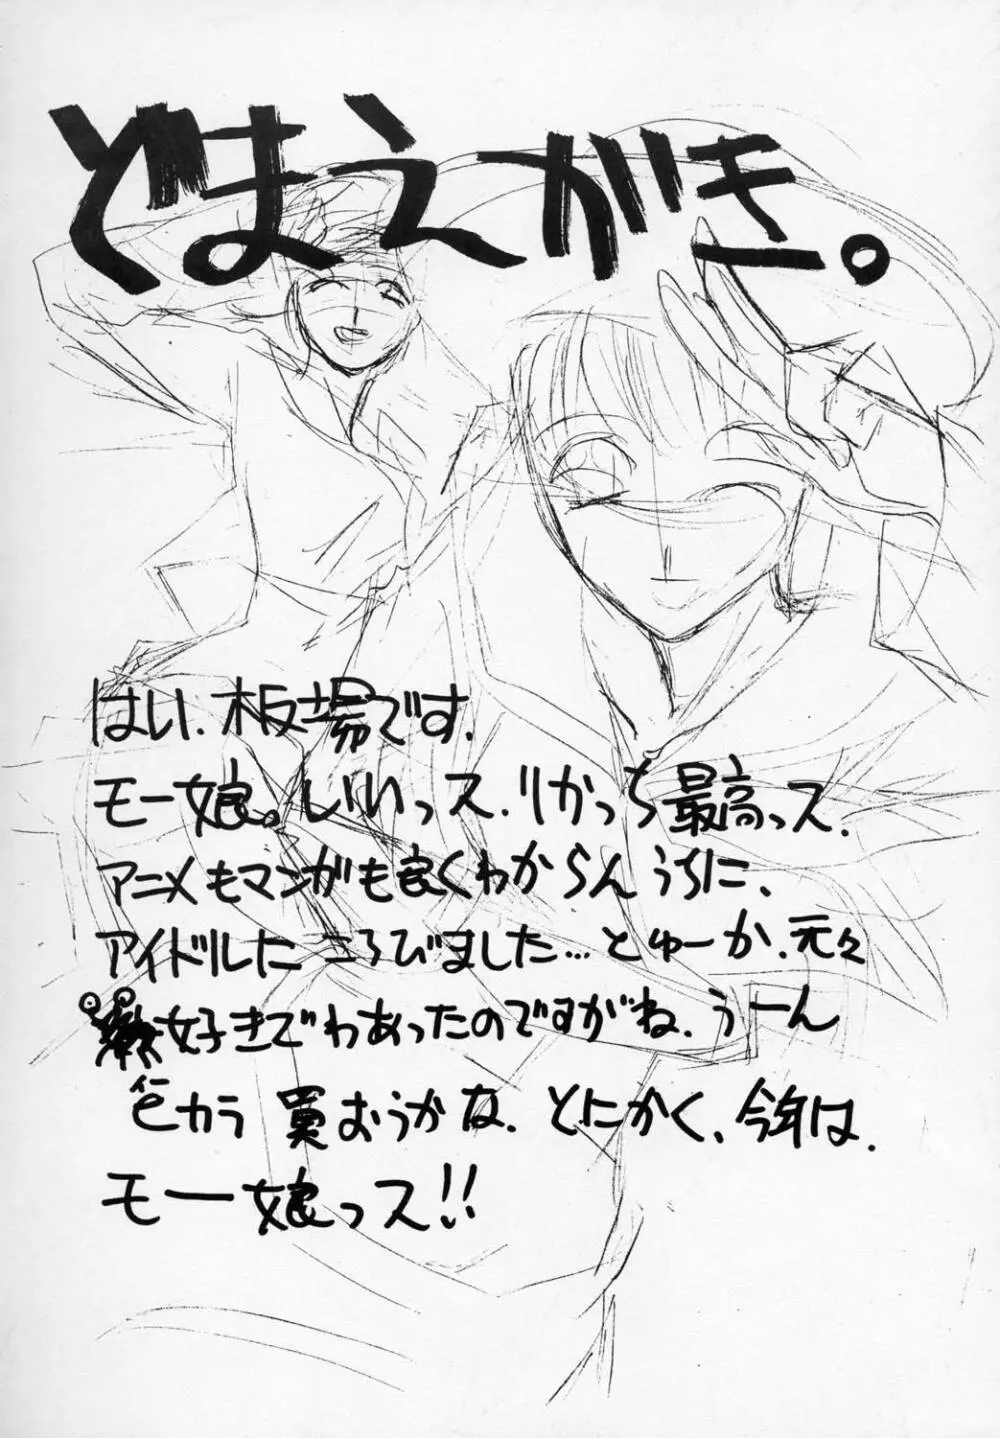 どまえがき。
はい、板場です。
モー娘。しいいっス、りかっち最高っス、
アニメもマンガも良くわからんうちに、
アイドルにころびました…とゅーか、元々
好きでわあったのですがね、うーん
ヒカラ買おうかな、とにかく、今年は、
モー娘っス!!